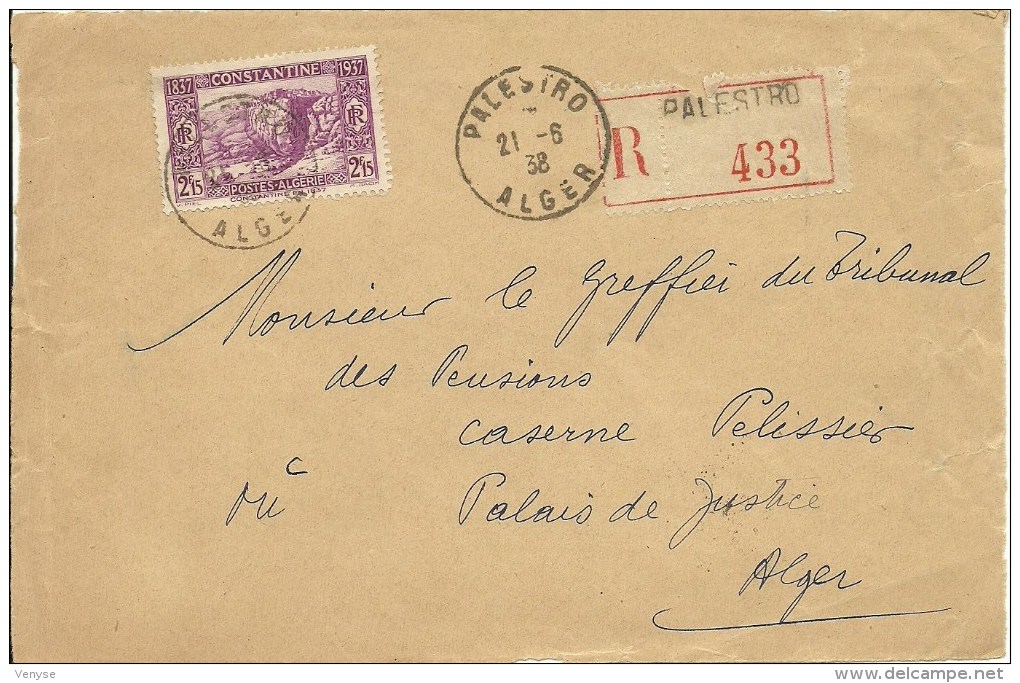 1837 CONSTANTINE 1937
RF RF
2F15 POSTES-ALGERIE 2F15
CONSTANTINE EN 1837
ALGER
PALESTRO
21 -6
38
ALGER
PALESTRO
R 433
Monsieur le Greffier du Tribunal
des Pensions
caserne Pelissier
où Palais de Justice
Alger
Venyse
delcampe.net